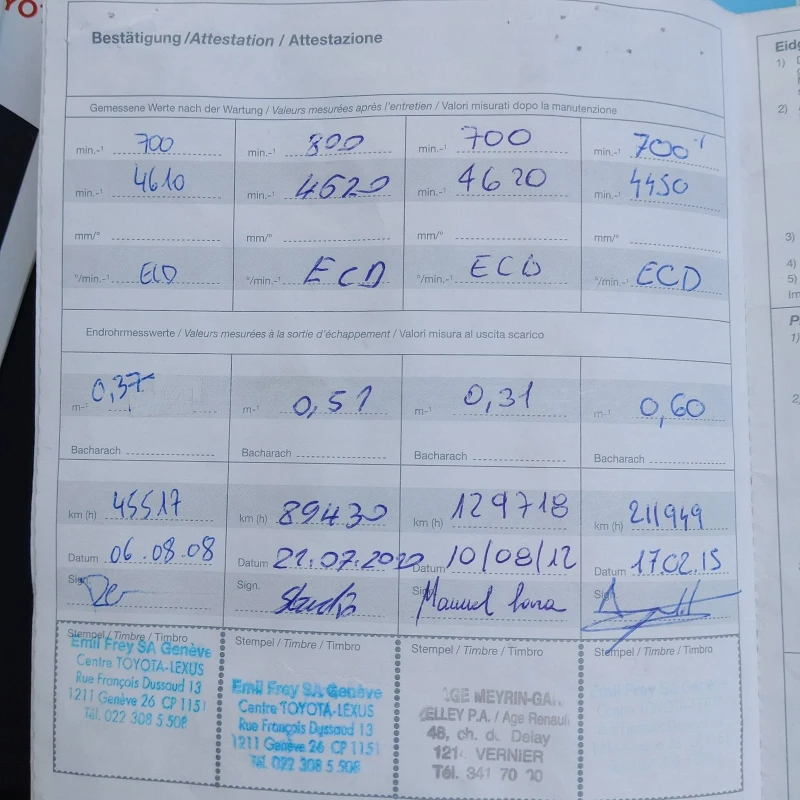 Bestätigung / Attestation / Attestazione
Gemessene Werte nach der Wartung / Valeurs mesurées après l'entretien / Valori misurati dopo la manutenzione
min.-¹ 700 min.-¹ 800 min.-¹ 700 min.-¹ 700-¹
min.-¹ 4610 min.-¹ 4620 min.-¹ 4620 min.-¹ 4450
mm/° mm/° mm/° mm/°
°/min.-¹ ECD °/min.-¹ ECD °/min.-¹ ECD °/min.-¹ ECD
Endrohrmesswerte / Valeurs mesurées à la sortie d'échappement / Valori misura al uscita scarico
m-¹ 0,37 m-¹ 0,51 m-¹ 0,31 m-¹ 0,60
Bacharach Bacharach Bacharach Bacharach
km (h) 45517 km (h) 89430 km (h) 129718 km (h) 211949
Datum 06.08.08 Datum 21.07.2010 Datum 10/08/12 Datum 17.02.15
Sign. Sign. Sign. Manuel Sign.
Stempel / Timbre / Timbro Stempel / Timbre / Timbro Stempel / Timbre / Timbro Stempel / Timbre / Timbro
Emil Frey SA Genève
Centre TOYOTA-LEXUS
Rue François Dussaud 13
1211 Genève 26 CP 1151
Tél. 022 308 5 508
Emil Frey SA Genève
Centre TOYOTA-LEXUS
Rue François Dussaud 13
1211 Genève 26 CP 1151
Tél. 022 308 5 508
AGE MEYRIN-GA
ELLEY P.A. / Age Renault
48, ch. d. Delay
121 VERNIER
Tél. 341 70
Eidg
1)
2)
3)
4)
5)
1)
2)